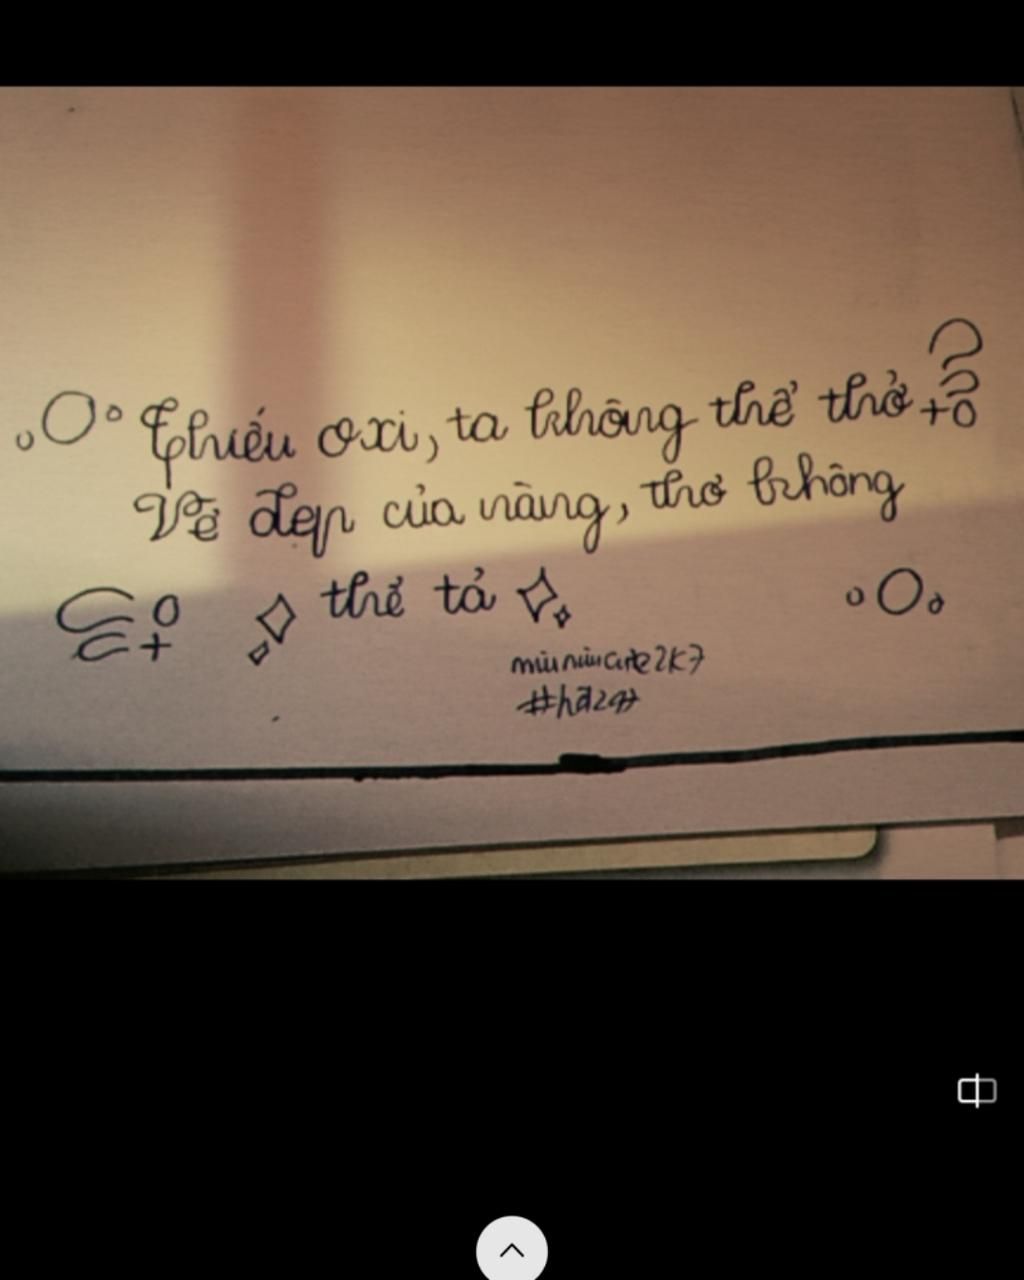 Thiếu oxi, ta không thể thở
Vẻ đẹp của nàng, thơ không
thể tả
miuniucute2k7